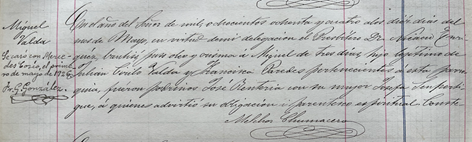 Miguel
Valda
Se caso con Merce-
des
el prime-
ro de mayo de 1926
Fr. G. Gonzalez.
del año del Señor de mil ochocientos ochenta y cuatro a los diez dias del
mes de Mayo, en virtud de mi delegacion el Presbítero Dr. Mariano
puso oleo y crisma á Miguel de tres dias, hijo legítimo de
Julian Valda y Francisca Paredes pertenecientes á esta parro-
quia, fueron padrinos José Renteria con su mujer Josefa
á quienes advirtió su obligacion i parentesco espiritual. Conste
Melchor Chumacero